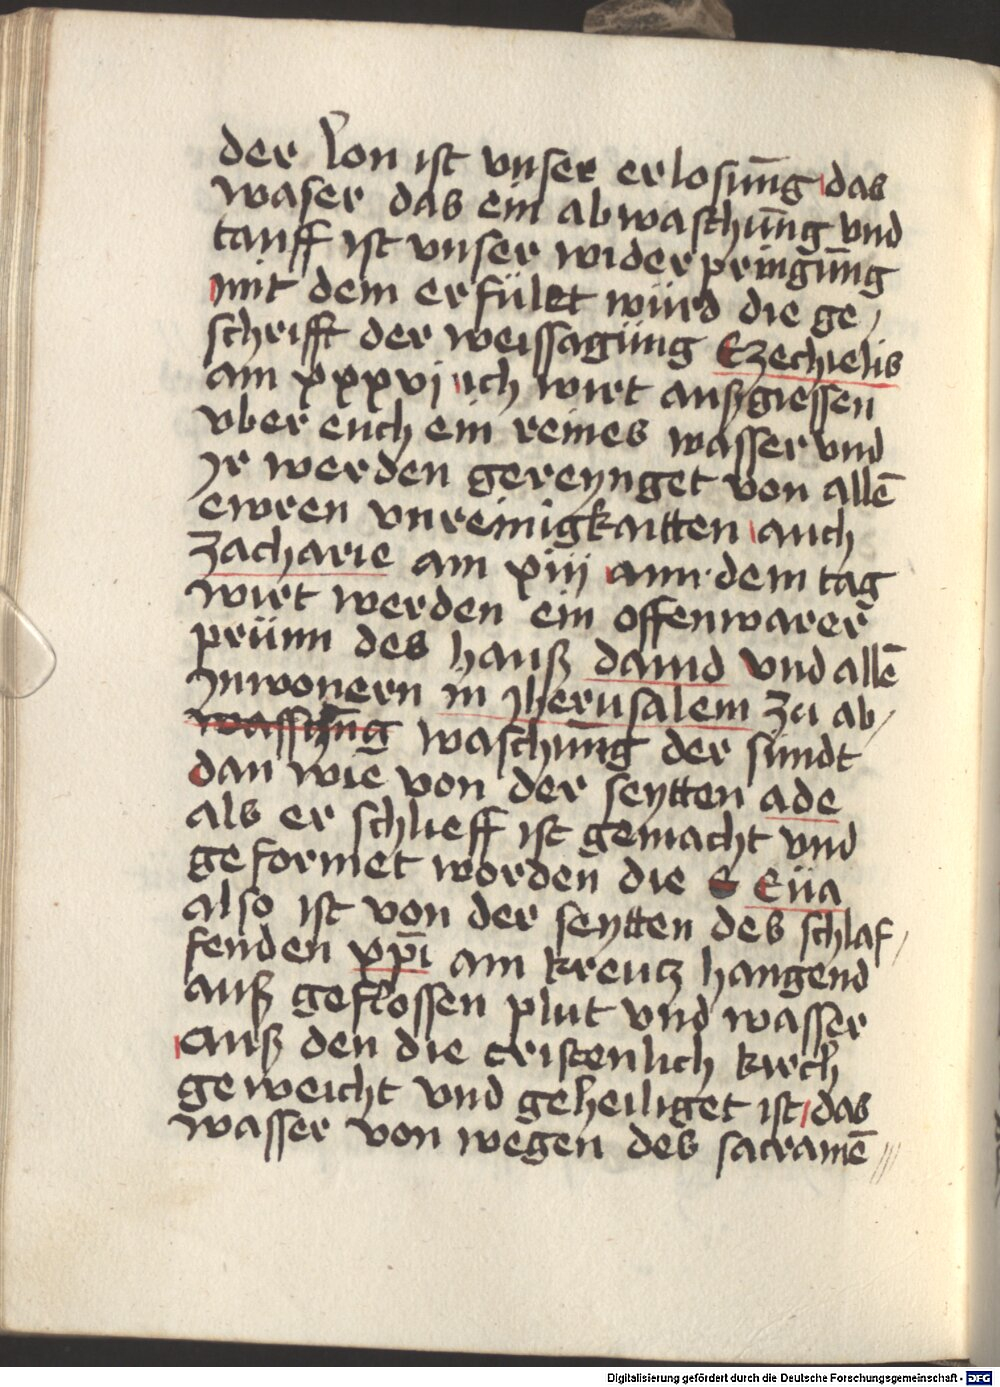 der lon ist vnser erlosūng das
waser das ein abwaschūng vnd
tauff ist vnser widerpringūng
mit dem erfület würd die ge/
schrifft der weissagüng Ezechielis
am xxxvj ich wirt auszgiessen
vber euch ein reines wasser vnd
Jr werden gereynget von allē
ewren vnreinigkaitten auch
Zacharie am xiij ann dem tag
wirt werden ein offenwarer
prünn des hausz dauid vnd allē
Jnwonern in Jherusalem zu ab/
wasschūng waschūng der sündt
dan wie von der seytten ade
als er schlieff ist gemacht vnd
geformet worden die E Eüa
also ist von der seytten des schlaf/
fenden xp̄i am kreutz hangend
ausz geflossen plut vnd wasser
ausz den die cristenlich kirch
geweicht vnd geheiliget ist das
wasser von wegen des sacramē
Digitalisierung gefördert durch die Deutsche Forschungsgemeinschaft - DFG